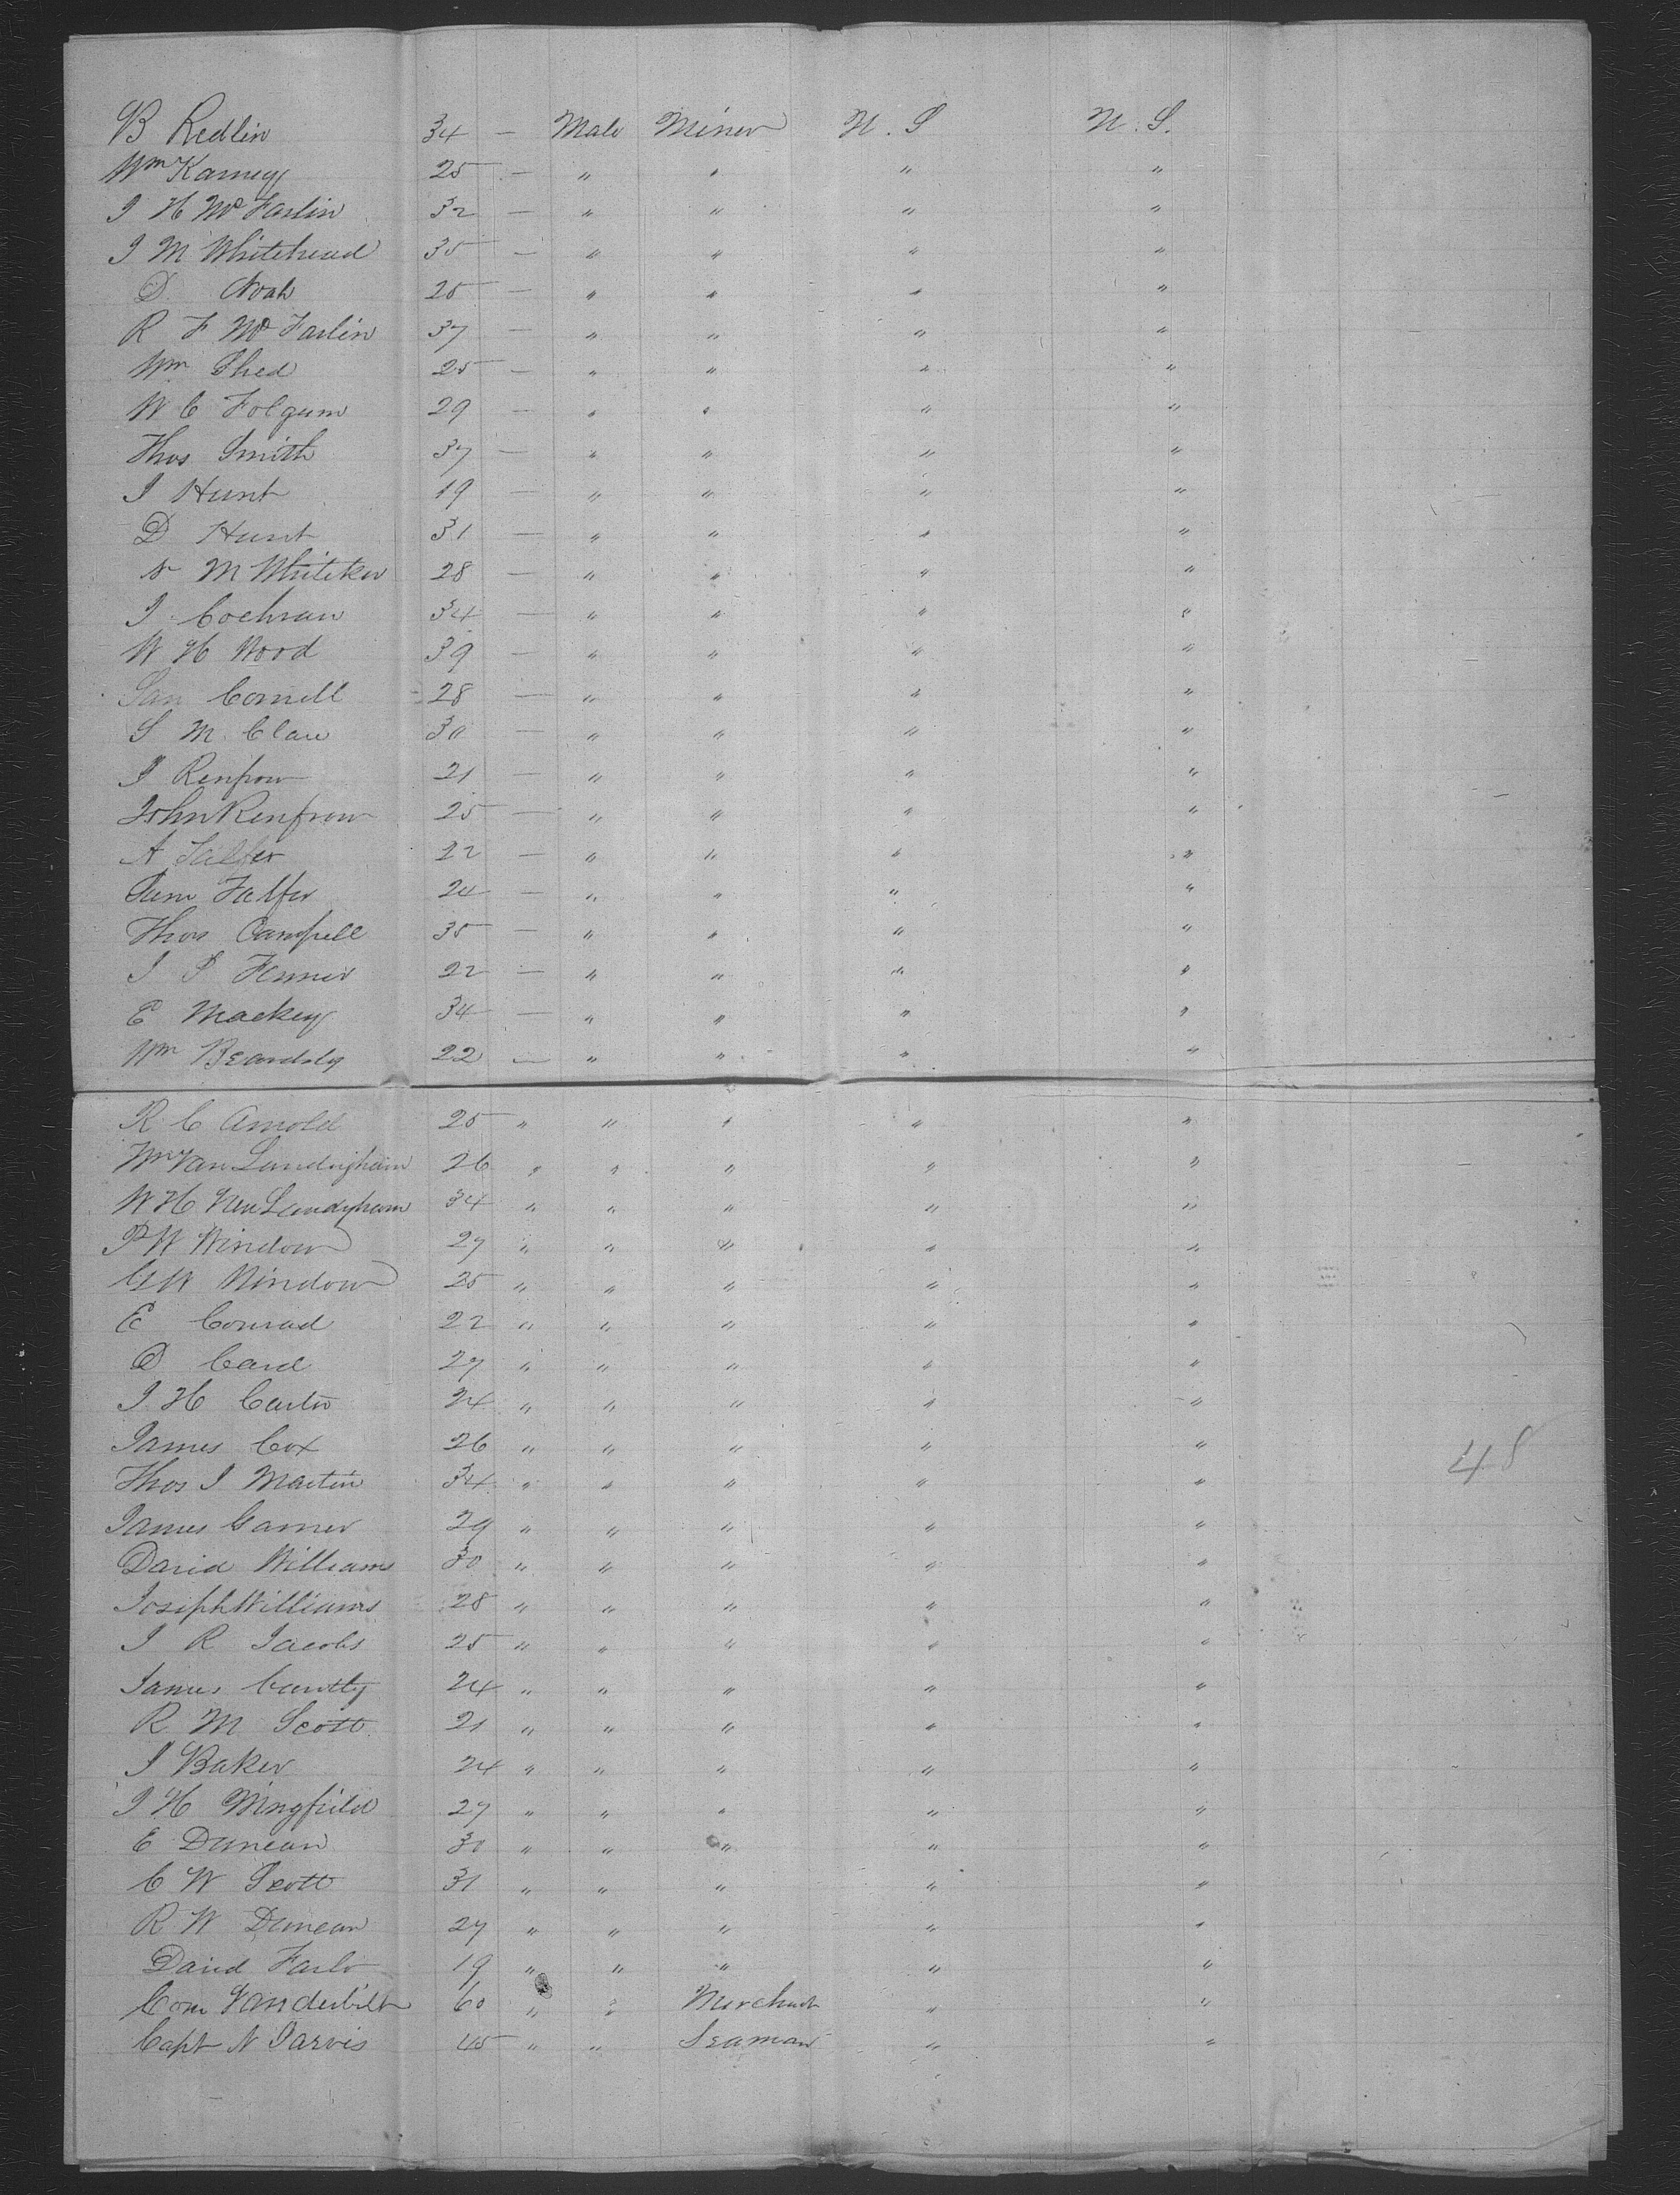 B Redlin 34 — Male Miner U. S U. S.
Wm Kamey 25 — " " " "
J H McFarlin 32 — " " " "
J M Whitehead 35 — " " " "
D. Noah 25 — " " " "
R F McFarlin 37 — " " " "
Wm Shed 25 — " " " "
W C Folgum 29 — " " " "
Thos Smith 37 — " " " "
J Hunt 19 — " " " "
D Hunt 31 — " " " "
M Whiteker 28 — " " " "
J. Cochran 34 — " " " "
W H Wood 39 — " " " "
Cornell 28 — " " " "
S M. Claw 30 — " " " "
J Renfrow 21 — " " " "
John Renfrow 25 — " " " "
A 22 — " " " "
24 — " " " "
Thos Campell 35 — " " " "
J P Fenner 22 — " " " "
E Mackey 34 — " " " "
Wm Beardsly 22 — " " " "
R C Arnold 25 " " " " "
Wm Van Landingham 26 " " " " "
W H Van Landyham 34 " " " " "
P W Window 27 " " " " "
G W Window 25 " " " " "
E Conrad 22 " " " " "
D Card 27 " " " " "
J. H Carter 24 " " " " "
James Cox 26 " " " " "
Thos J Martin 34 " " " " " 48
James Garner 29 " " " " "
David Williams 30 " " " " "
Joseph Williams 28 " " " " "
J R Jacobs 25 " " " " "
James Cantly 24 " " " " "
R M Scott 21 " " " " "
J Baker 24 " " " " "
J H Wingfield 27 " " " " "
E Duncan 30 " " " " "
C W Scott 31 " " " " "
R W Duncan 27 " " " " "
David Farlo 19 " " " " "
Com Vanderbilt 60 " " Merchant " "
Capt N Jarvis 45 " " Seaman " "